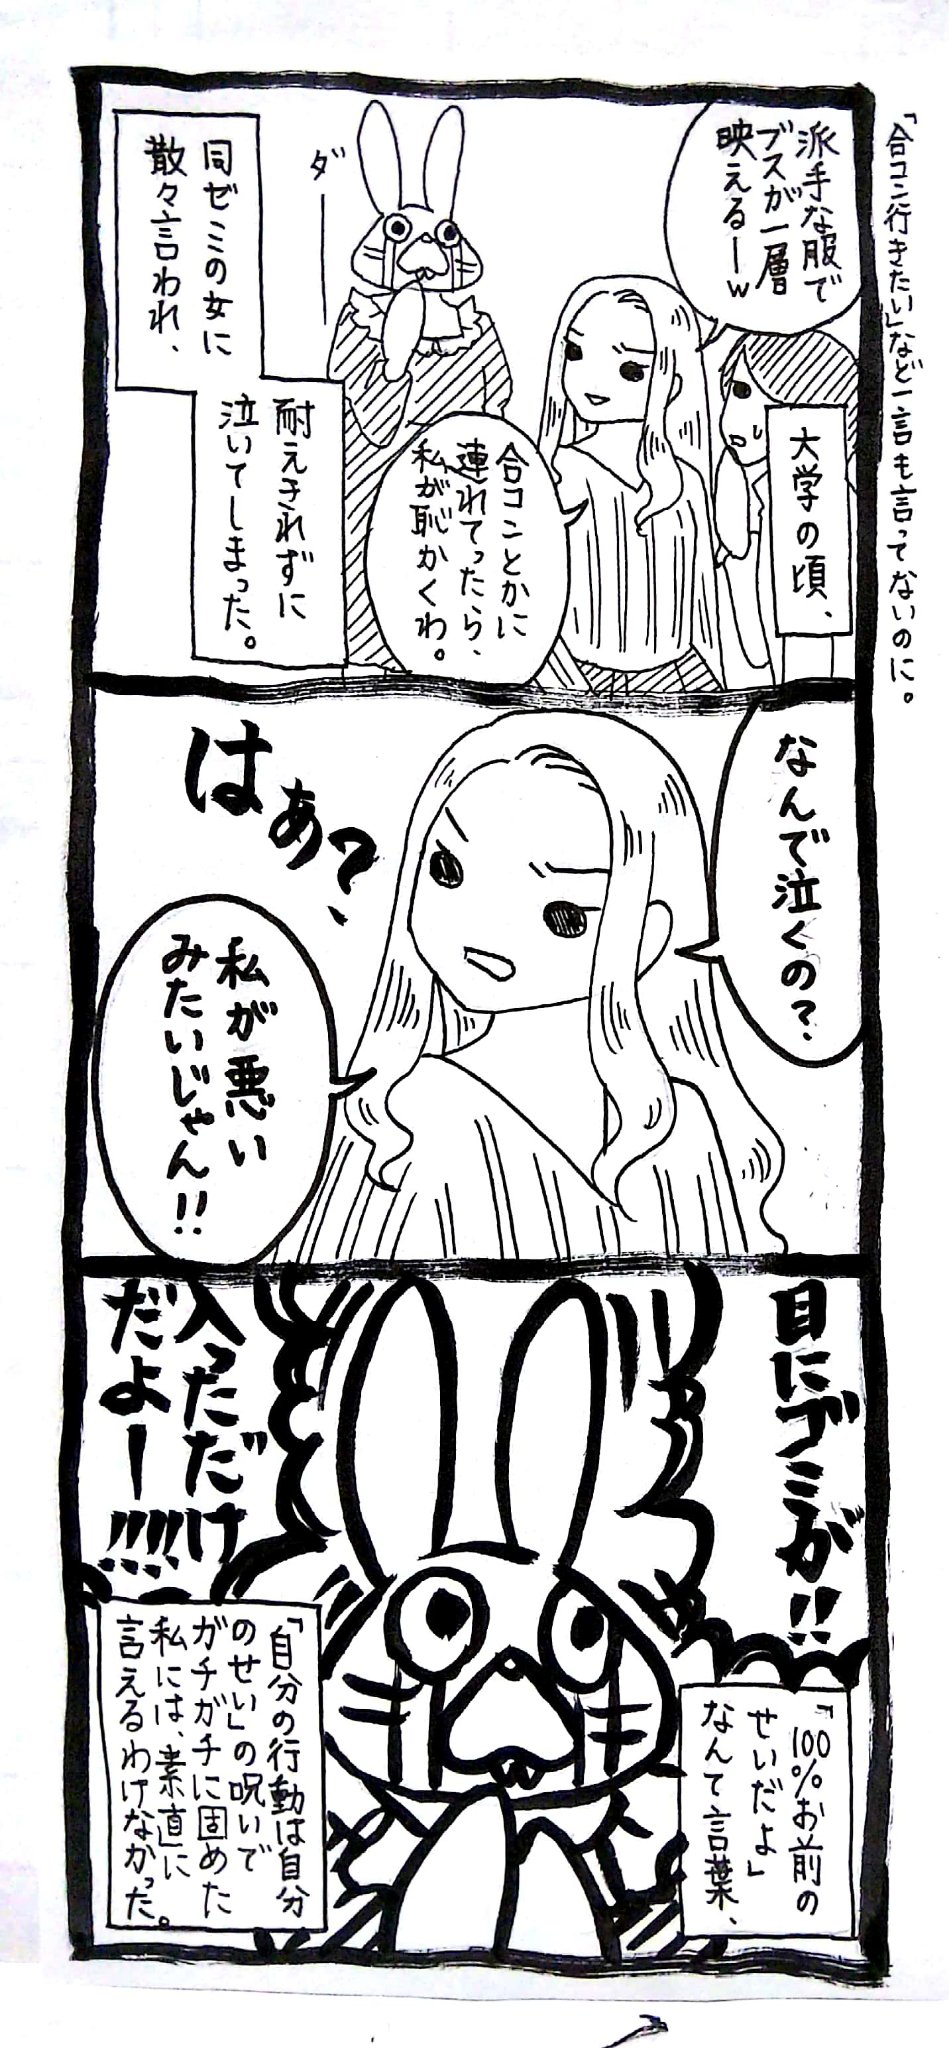 「合コン行きたい」など一言も言ってないのに。
派手な服で
ブスが一層
映えるーw
大学の頃、
合コンとかに
連れてったら、
私が恥かくわ。
ダー
同ゼミの女に
散々言われ、
耐えきれずに
泣いてしまった。
なんで泣くの?
はぁ?
私が悪い
みたいじゃん!!
目にゴミが!!
入っただけ
だよー!!!!!
「100%お前の
せいだよ」
なんて言葉、
「自分の行動は自分
のせい」の呪いで
ガチガチに固めた
私には、素直に
言えるわけなかった。